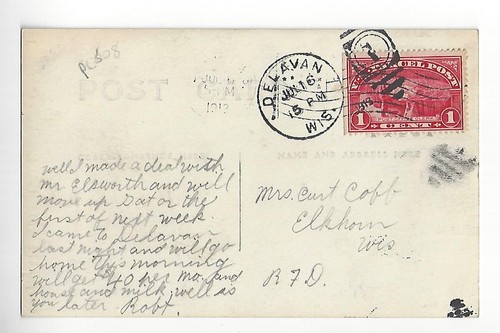 pc508
POST
DELAVAN
JUL 16
5 PM
WIS.
1913
U.S. PARCEL POST
POST OFFICE CLERK
1 1
CENT
NAME AND ADDRESS HERE
well I made a deal with
mr Elsworth and will
move up Sat or the
first of next week.
I came to Delavan
last night and will go
home this morning
will get $40 per mo. and
house and milk, well is
you later Robt.
Mrs. Curt Cobb
Elkhorn
Wis
R F D.